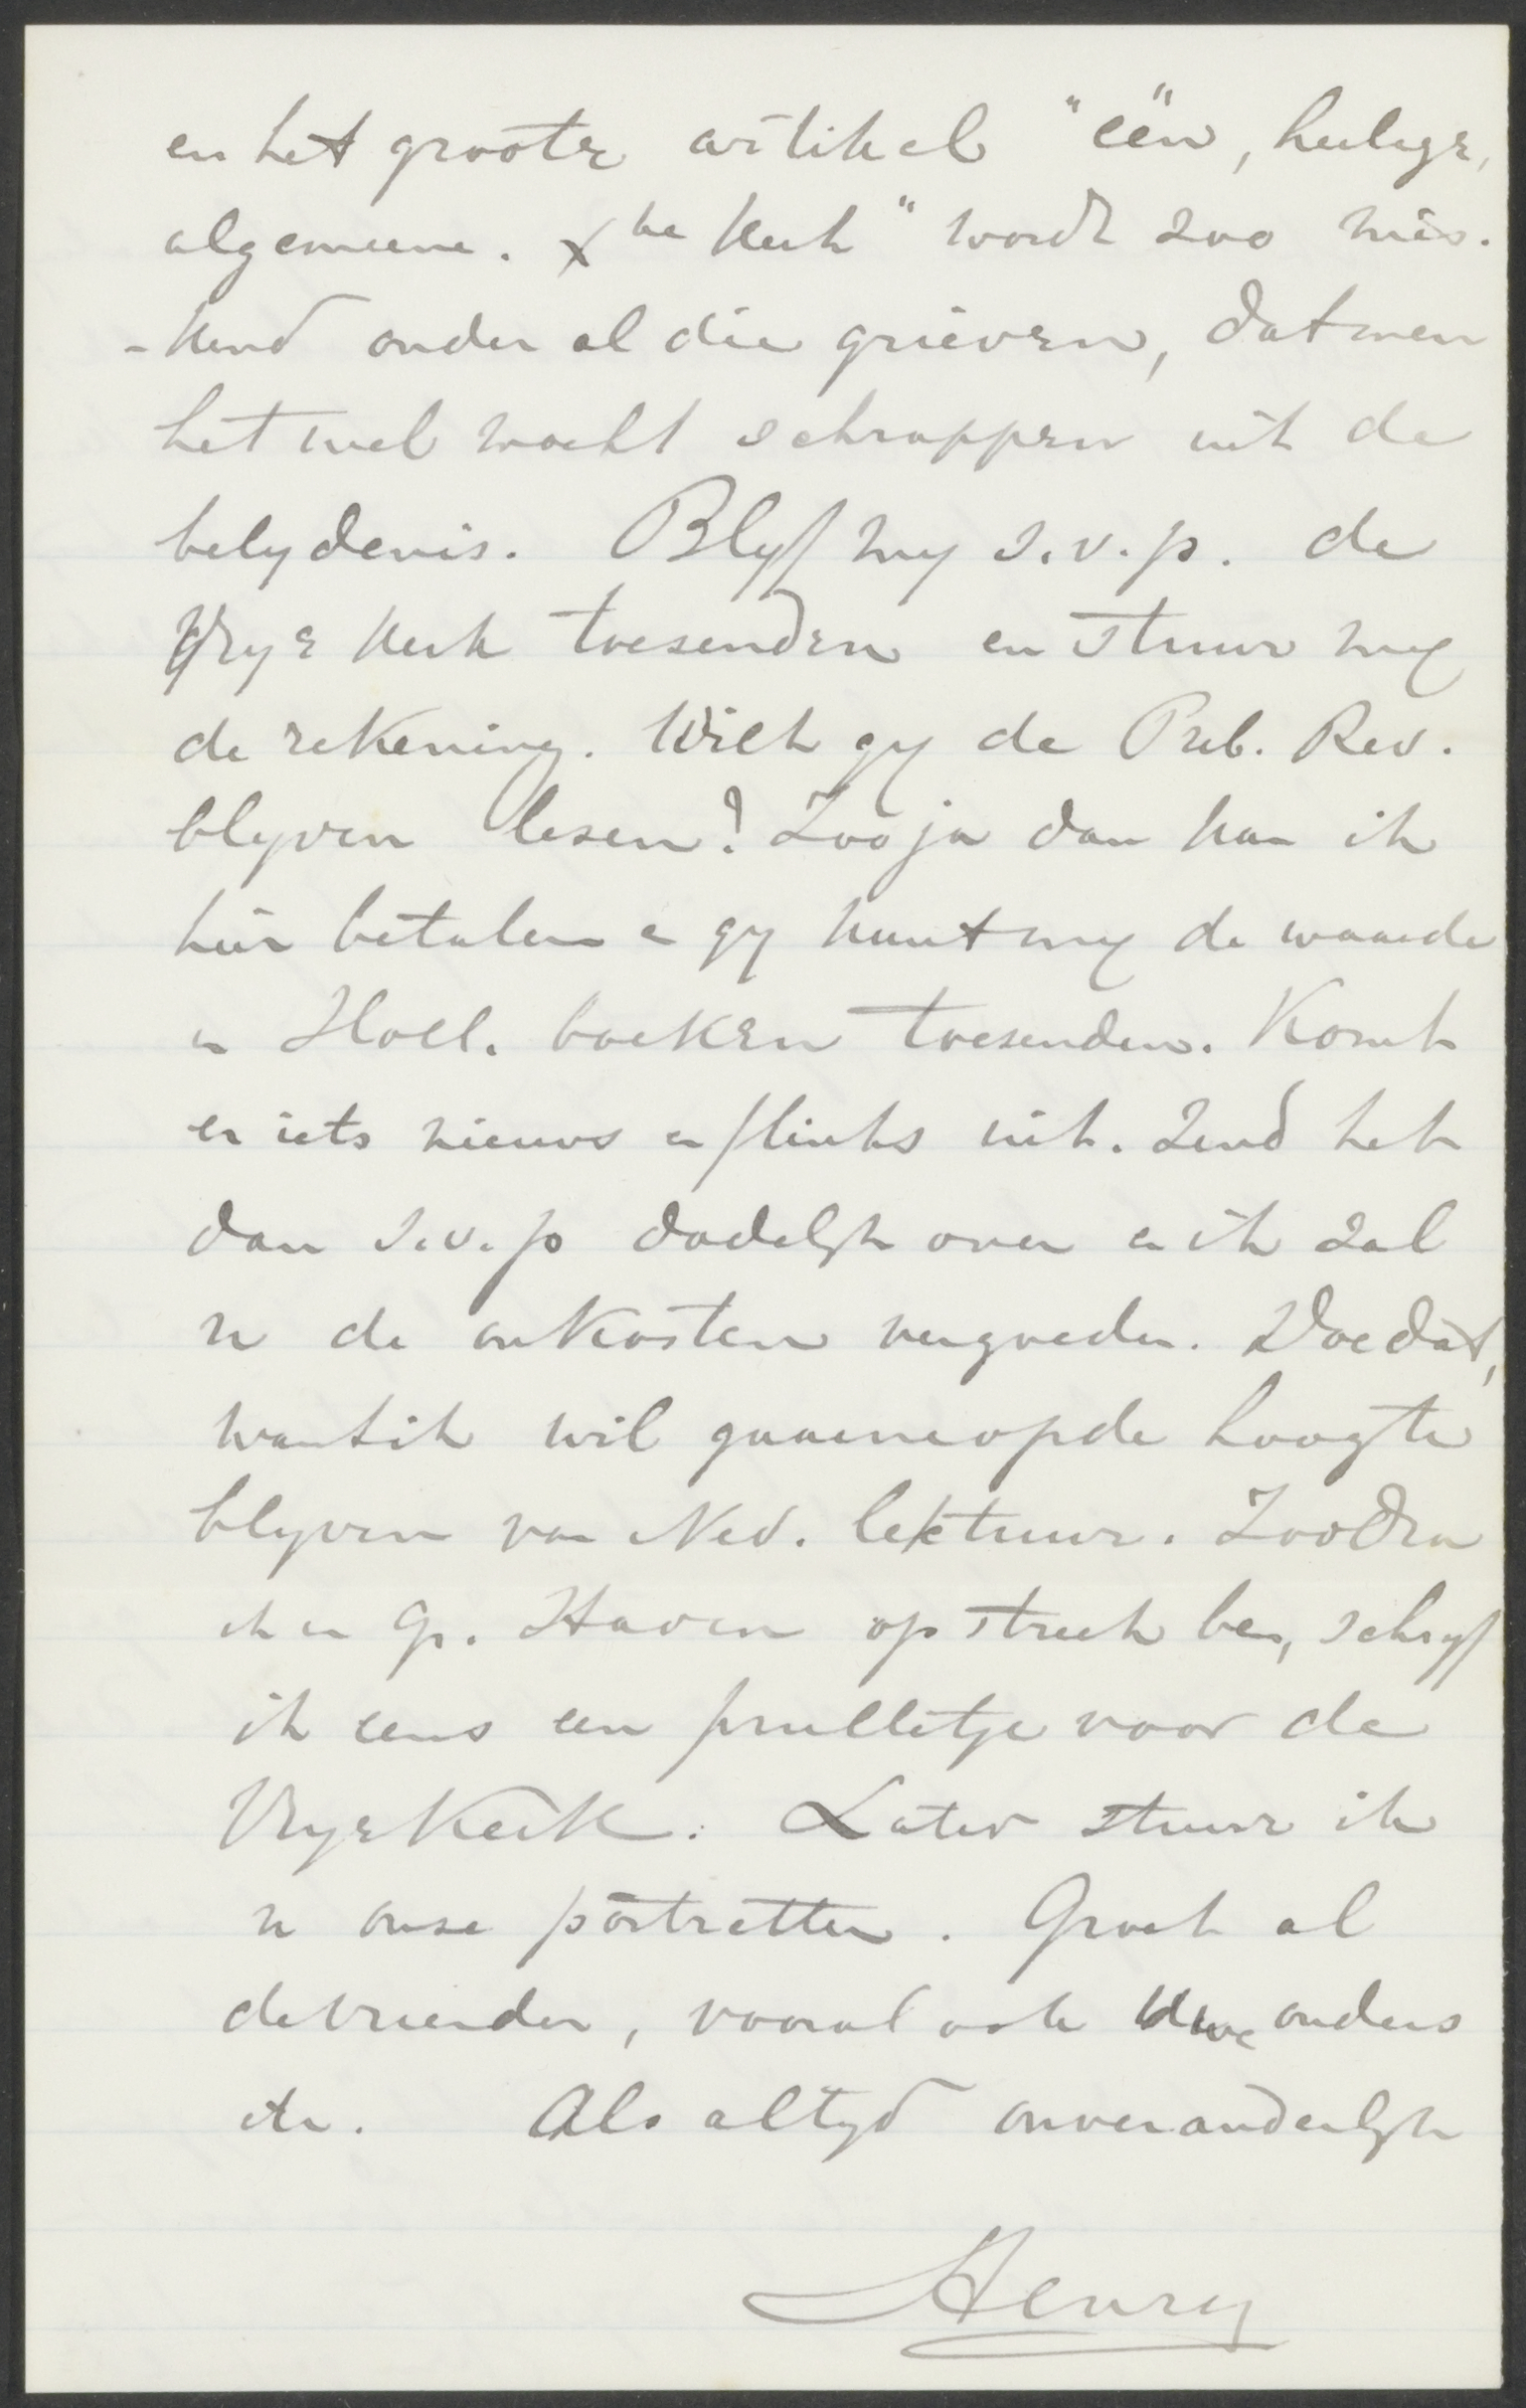 en het groote artikel "één, heilige,
algemeene. Xke Kerk" wordt zoo mis-
-kend onder al die grieven, dat men
het wel mocht schrappen uit de
belydenis. Blyf my s.v.p. de
Vrye Kerk toesenden en stuur my
de rekening. Wilt gy de Preb. Rev.
blyven lesen? Zoo ja dan kan ik
hier betalen en gy kunt my de waarde
in Holl. boeken toesenden. Komt
er iets nieuws en flinks uit. Zend het
dan s.v.p dadelyk over en ik zal
u de onkosten vergoeden. Doe dat,
want ik wil gaarne op de hoogte
blyven van Ned. lektuur. Zoodra
ik in Gr. Haven op streek ben, schryf
ik eens een prulletje voor de
Vrye Kerk. Later stuur ik
u onse portretten. Groet al
de vrienden, vooral ook Uwe ouders
etc. Als altyd onveranderlyk
Henry